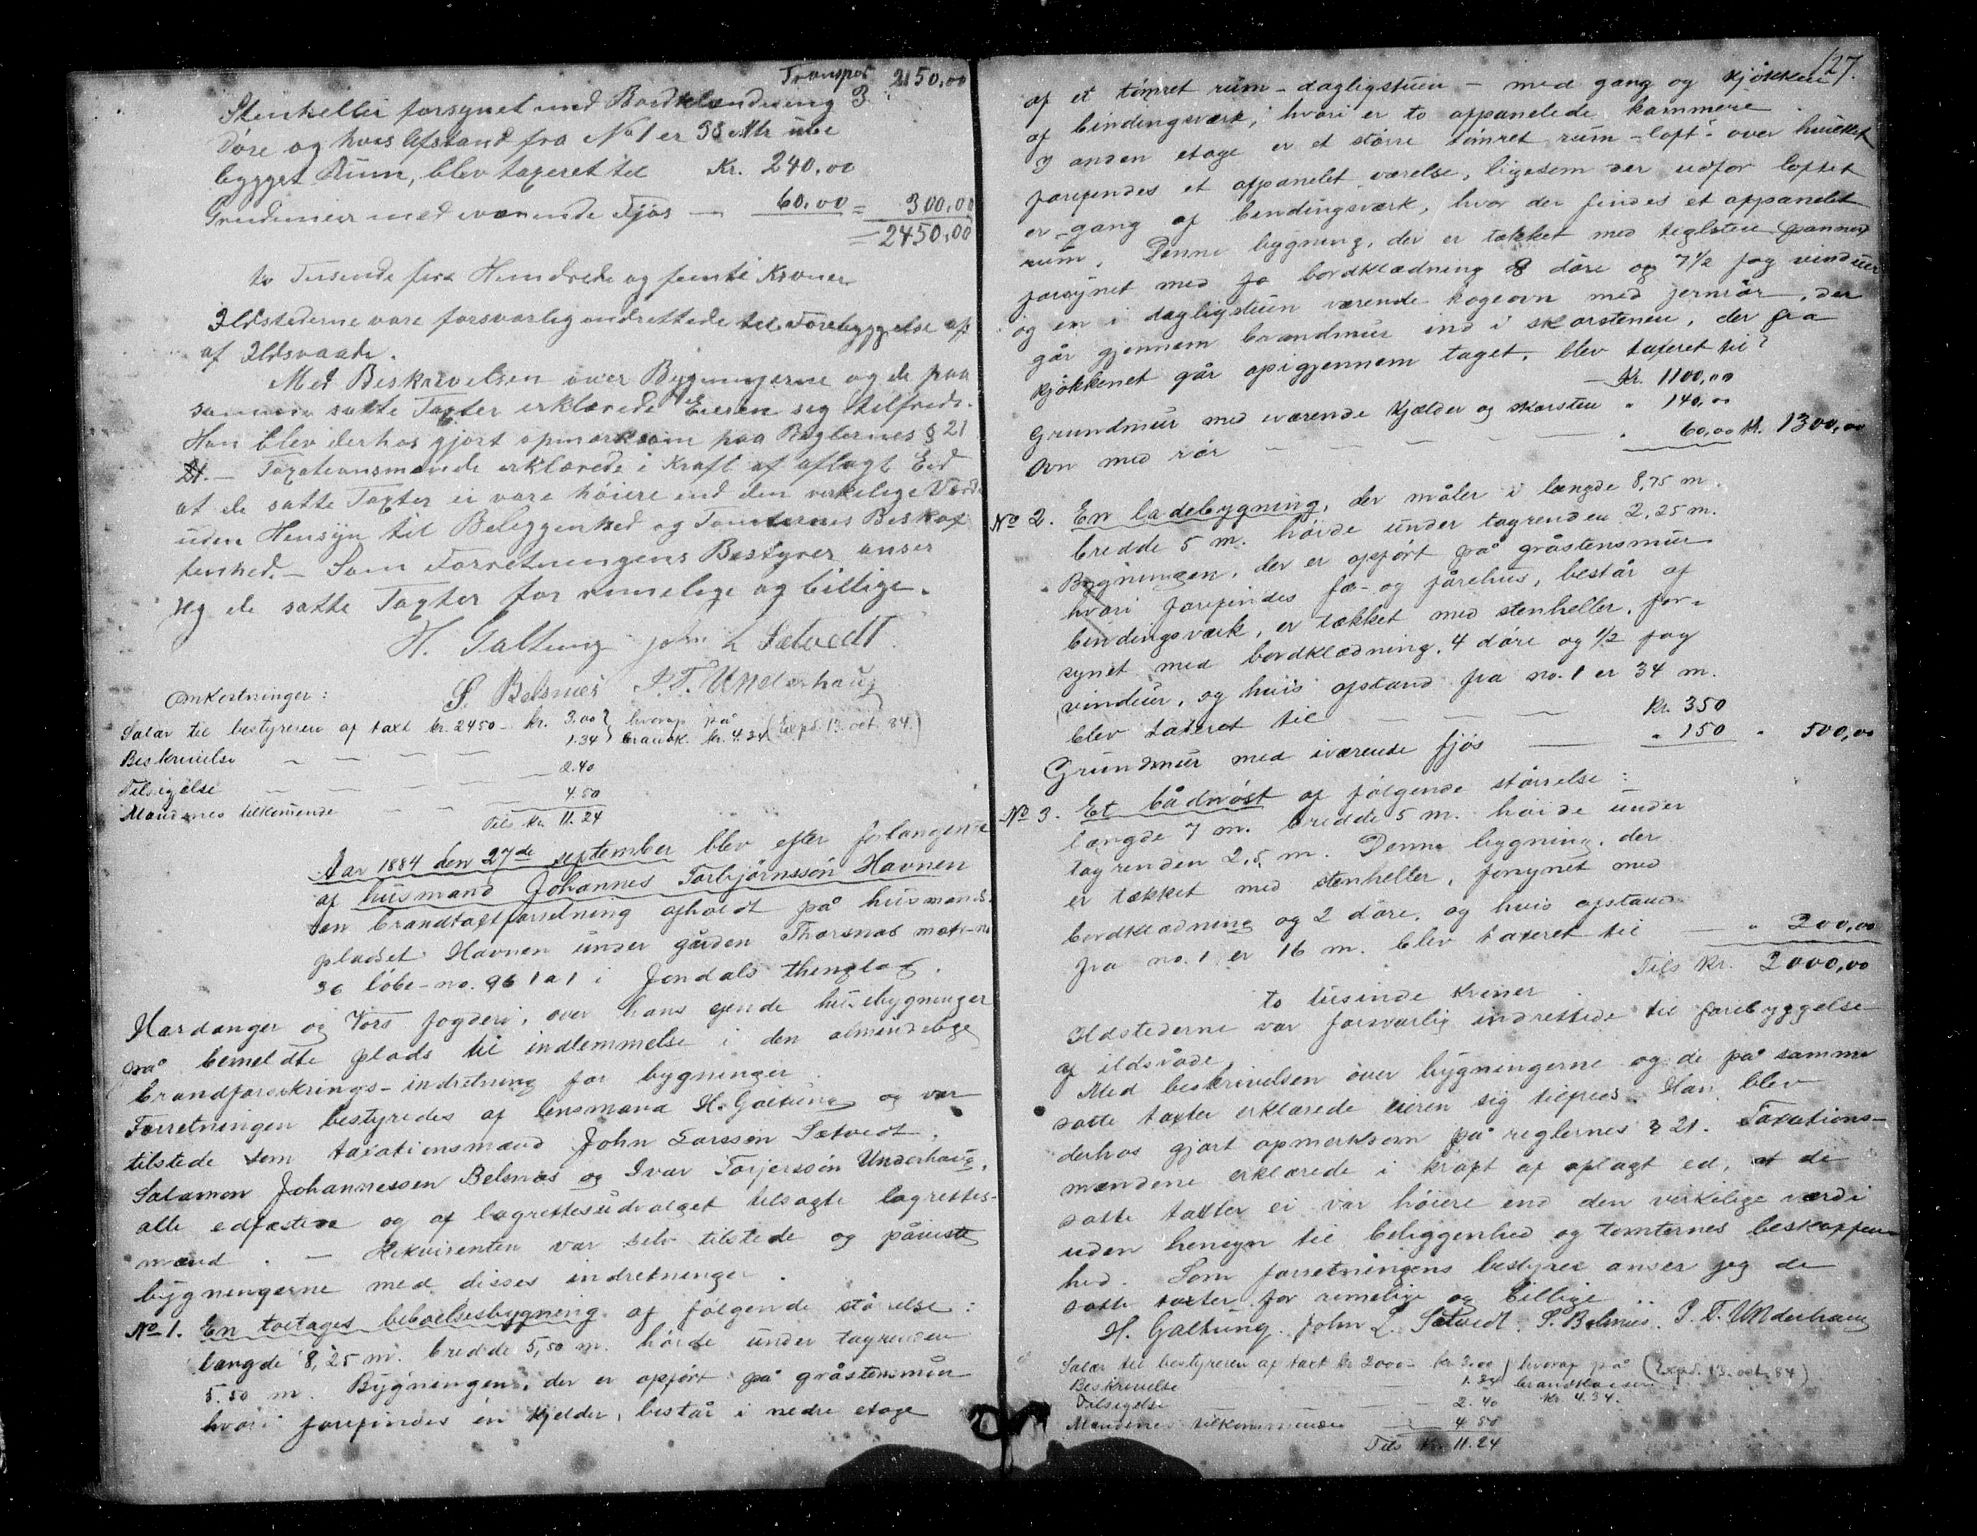 Transpor 2150,00
Stenheller forsynet med Bordklædning 3
Døre og hvis Afstand fra No 1 er 38 Mtr ube
bygget Rum, blev taxeret til Kr. 240,00
Grundmur med iværende Fjøs — 60,00 = 300,00
= 2450,00
to Tusende fire Hundrede og femti Kroner
Ildstederne vare forsvarlig indrettede til Forebyggelse af
af Ildsvaade.
Med Beskrivelsen over Bygningerne og de paa
samme satte Taxter erklærede Eieren sig tilfreds.
Han blev derhos gjort opmærksom paa Reglernes § 21
21. — Taxationsmænde erklærede i Kraft af aflagt Eed
at de satte Taxter ei vare høiere end den virkelige Værdi
uden Hensyn til Beliggenhed og Tomternes Beskaf
fenhed. — Som Forretningens Bestyrer anser
jeg de satte Taxter for rimelige og billige.
H. Galtung John L Sætvedt
S. Belsnæs I. T. Underhaug
Omkostninger:
Salær til bestyreren af taxt kr. 2450 — kr. 3.00 } hvoraf på (Exp. 13. oct. 84.)
Beskrivelse — — — — 1.34 } brandk. kr. 4.34
Tilsigelse — — — — 2.40
Mændenes tilkommende — — — 4.50
Tils kr. 11.24
Aar 1884 den 27de september blev efter forlangende
af husmand Johannes Torbjørnssøn Havnen
en brandtaxtforretning afholdt på husmands-
pladset Havnen under gården Thorsnæs matr-no
36 løbe-no. 96 1 a 1 i Jondals thinglag,
Hardanger og Vors fogderi, over hans ejende husebygninger
på bemeldte plads til indlemmelse i den almindelige
brandforsikrings-indretning for bygninger.
Forretningen bestyredes af lensmand H. Galtung og var
tilstede som taxationsmænd John Larssøn Sætvedt,
Salamon Johannessen Belsnæs og Ivar Torjerssøn Underhaug,
alle edfæstede og af lagrettesudvalget tilsagte lagrettes-
mænd. — Rekvirenten var selv tilstede og påviste
bygningerne med disses indretninger.
No 1. En toetages beboelsesbygning af følgende størrelse:
længde 8,25 m. bredde 5,50 m. høide under tagrenden
5.50 m. Bygningen, der er opført på gråstensmur
hvori forefindes én kjelder, består i nedre etage
127.
af et tømret rum - dagligstuen - med gang og kjøkken
af bindingsværk, hvori er to afpanelede kammere.
I anden etage er et større tømret rum - loft - over hvilket
forefindes et afpanelet værelse, ligesom der udfor loftet
er gang af bindingsværk, hvor der findes et afpanelet
rum. Denne bygning, der er tækket med teglsten (panner)
forsynet med bordklædning 8 døre og 7 1/2 fag vinduer
og en i dagligstuen værende kogeovn med jernrør, der
går gjennem brandmur ind i skorstenen, der fra
kjøkkenet går op igjennem taget, blev taxeret til
— Kr. 1100,00
Grundmur med iværende kjælder og skorsten " 140,00
Ovn med rør — — — — " 60,00 Kr. 1300,00
No 2. En ladebygning, der måler i længde 8,75 m.
bredde 5 m. høide under tagrenden 2,25 m.
Bygningen, der er opført på gråstensmur
hvori forefindes fæ- og fårehus, består af
bindingsværk, er tækket med stenheller, for-
synet med bordklædning, 4 døre og 1/2 fag
vinduer, og hvis afstand fra no. 1 er 34 m.
blev taxeret til — — — Kr. 350
Grundmur med iværende fjøs — " 150 " 500,00
No 3. Et bådnøst af følgende størrelse:
længde 7 m. bredde 5 m. høide under
tagrenden 2,5 m. Denne bygning, der
er tækket med stenheller, forsynet med
bordklædning og 2 døre, og hvis afstand
fra no. 1 er 16 m. blev taxeret til — " 200,00
Tils Kr. 2000,00
to tusinde kroner.
Ildstederne var forsvarlig indrettede til forebyggelse
af ildsvåde.
Med beskrivelsen over bygningerne og de på samme
satte taxter erklærede eieren sig tilfreds. Han blev
derhos gjort opmærksom på reglernes § 21. Taxations-
mændene erklærede i kraft af aflagt ed, at de
satte taxter ei var høiere end den virkelige værdi
uden hensyn til beliggenhed og tomternes beskaffen-
hed. Som forretningens bestyrer anser jeg de
satte taxter for rimelige og billige.
H. Galtung. John L. Sætvedt. S. Belsnæs. I. T. Underhaug
Salær til bestyreren af taxt kr 2000 - kr. 3.00 } hvoraf på (Exp. 13. oct. 84)
Beskrivelse — 1.34 } brandkassen
Tilsigelse — 2.40 kr. 4.34.
Mændenes tilkommende — 4.50
Tils Kr. 11.24